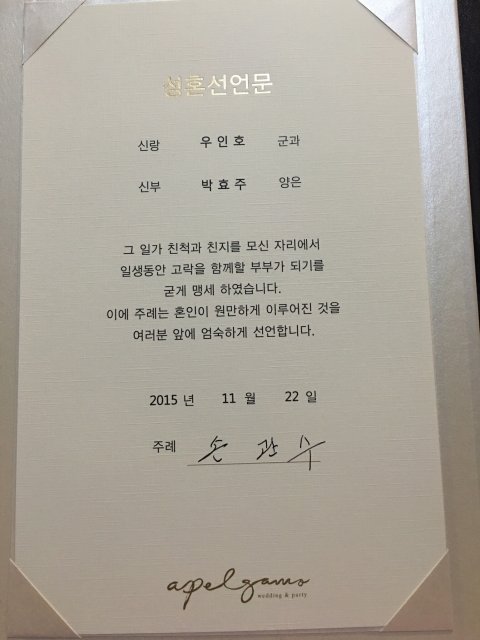 성혼선언문
신랑 우인호 군과
신부 박효주 양은
그 일가 친척과 친지를 모신 자리에서
일생동안 고락을 함께할 부부가 되기를
굳게 맹세 하였습니다.
이에 주례는 혼인이 원만하게 이루어진 것을
여러분 앞에 엄숙하게 선언합니다.
2015 년 11 월 22 일
주례 손 관 수
apelgamo
wedding & party